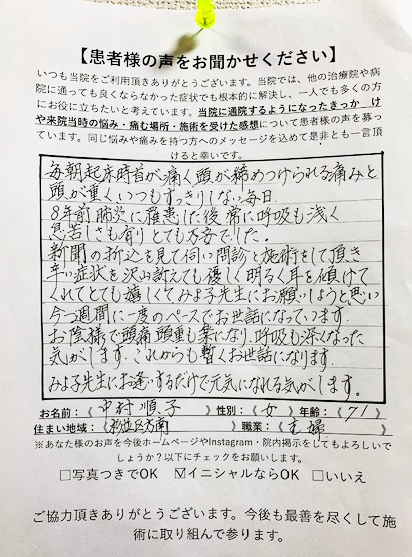 【患者様の声をお聞かせください】
いつも当院をご利用頂きありがとうございます。当院では、他の治療院や病
院に通っても良くならなかった症状でも根本的に解決し、一人でも多くの方
にお役に立ちたいと考えています。当院に通院するようになったきっか け
や来院当時の悩み・痛む場所・施術を受けた感想について患者様の声を募っ
ています。同じ悩みや痛みを持つ方へのメッセージを込めて是非とも一言頂
けると幸いです。
毎朝起床時首が痛く頭が締めつけられる痛みと
頭が重くいつもすっきりしない毎日
8年前肺炎に罹患した後常に呼吸も浅く
息苦しさも有りとても不安でした。
新聞の折込を見て伺い問診と施術をして頂き
辛い症状を沢山訴えても優しく明るく耳を傾けて
くれてとても嬉しくてみよ子先生にお願いしようと思い
今一週間に一度のペースでお世話になっています
お陰様で頭痛頭重も楽になり、呼吸も深くなった
気がします。これからも暫くお世話になります
みよ子先生にお逢いするだけで元気になれる気がします。
お名前:《 中村順子 》性別:《 女 》年齢:《 71 》
住まい地域:《 方南 》職業:《 主婦 》
※あなた様のお声を今後ホームページやInstagram・院内掲示をしてもよろしいで
しょうか?以下にチェックをお願いします。
□写真つきでOK ☑イニシャルならOK □いいえ
ご協力頂きありがとうございます。今後も最善を尽くして施
術に取り組んで参ります。